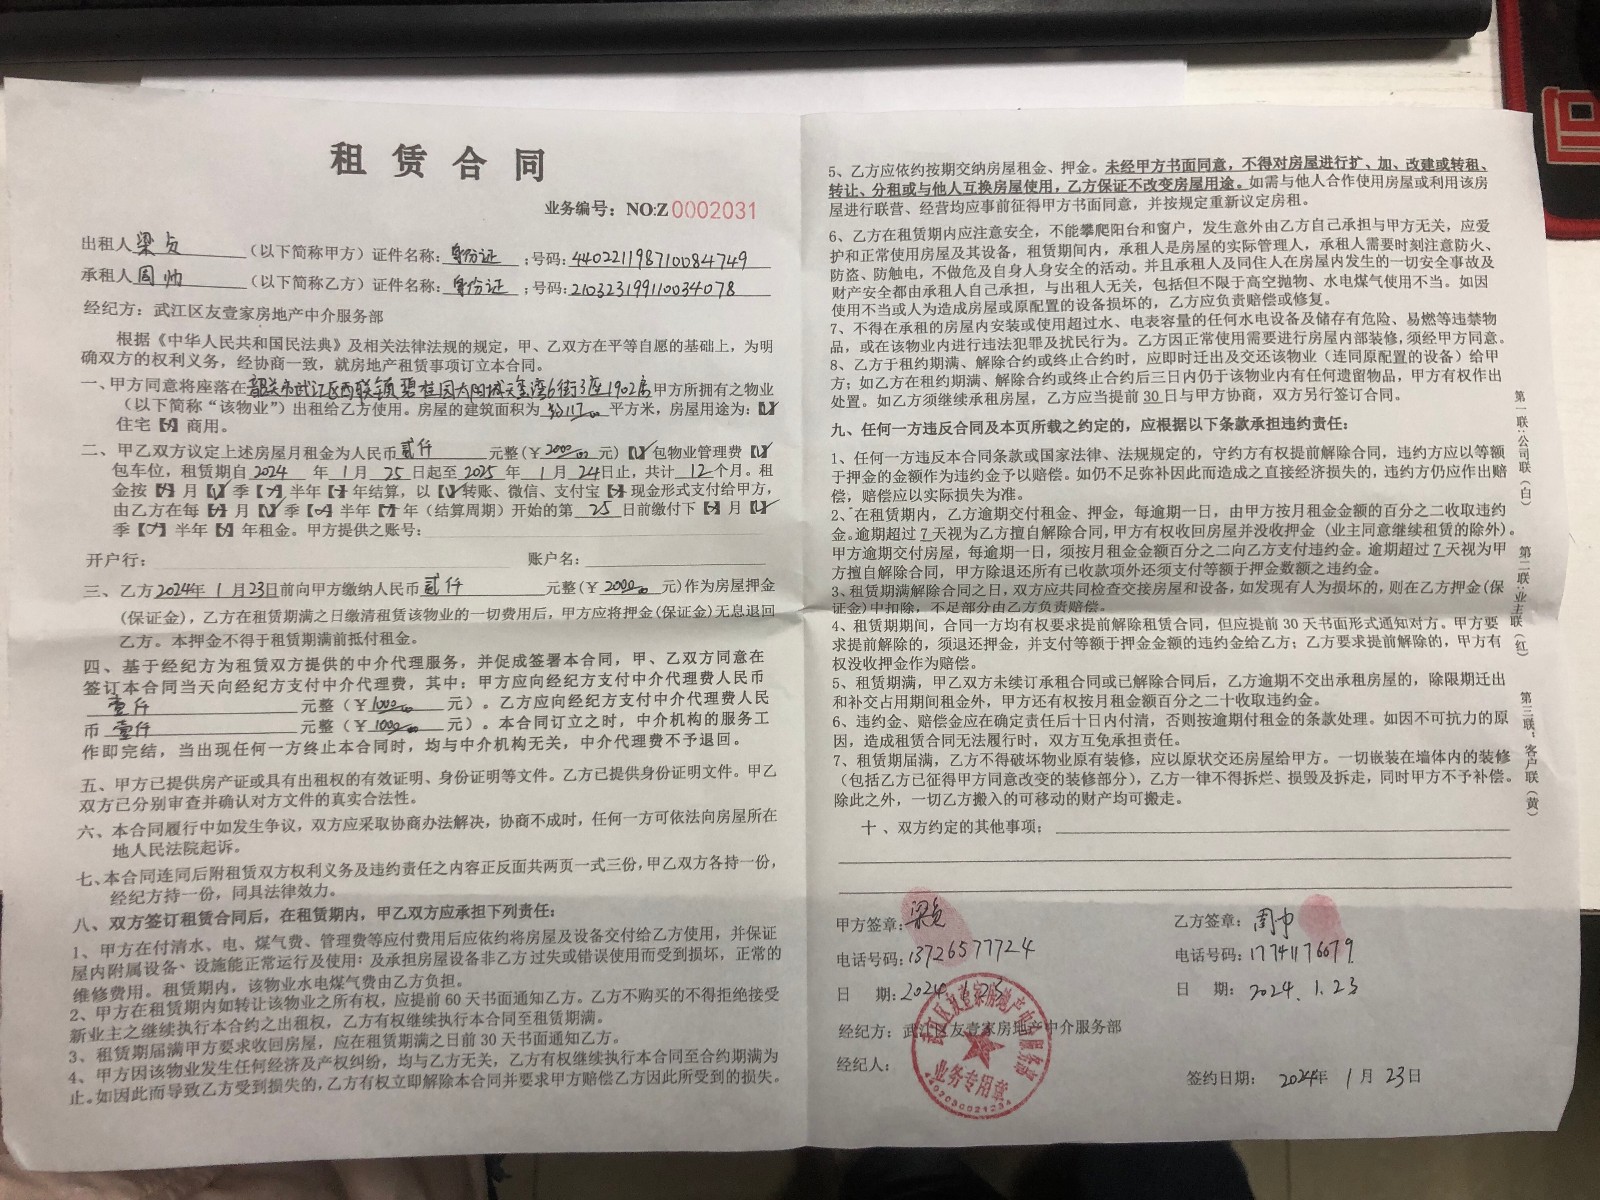 租赁合同
业务编号：NO:Z 0002031
出租人 梁贞 （以下简称甲方）证件名称：身份证 ；号码：440221198710084749
承租人 周帅 （以下简称乙方）证件名称：身份证 ；号码：210323199110034078
经纪方：武江区友壹家房地产中介服务部
根据《中华人民共和国民法典》及相关法律法规的规定，甲、乙双方在平等自愿的基础上，为明
确双方的权利义务，经协商一致，就房地产租赁事项订立本合同。
一、甲方同意将座落在韶关市武江区西联镇碧桂园太阳城天玺湾6街3座1902房甲方所拥有之物业
（以下简称“该物业”）出租给乙方使用。房屋的建筑面积为 117 平方米，房屋用途为：【✓】
住宅【✗】商用。
二、甲乙双方议定上述房屋月租金为人民币贰仟 元整（￥2000.00 元）【✓】包物业管理费【✓】
包车位，租赁期自2024 年 1 月 25 日起至 2025 年 1 月 24日止，共计 12 个月。租
金按【✗】月【✓】季【✗】半年【✗】年结算，以【✓】转账、微信、支付宝【✗】现金形式支付给甲方，
由乙方在每【✗】月【✓】季【✗】半年【✗】年（结算周期）开始的第 25 日前缴付下【✗】月【✓】
季【✗】半年【✗】年租金。甲方提供之账号：
开户行： 账户名：
三、乙方2024年 1 月 23日前向甲方缴纳人民币 贰仟 元整（￥ 2000.00 元）作为房屋押金
（保证金），乙方在租赁期满之日缴清租赁该物业的一切费用后，甲方应将押金（保证金）无息退回
乙方。本押金不得于租赁期满前抵付租金。
四、基于经纪方为租赁双方提供的中介代理服务，并促成签署本合同，甲、乙双方同意在
签订本合同当天向经纪方支付中介代理费，其中：甲方应向经纪方支付中介代理费人民币
壹仟 元整（￥1000.00 元）。乙方应向经纪方支付中介代理费人民
币 壹仟 元整（￥1000.00 元）。本合同订立之时，中介机构的服务工
作即完结，当出现任何一方终止本合同时，均与中介机构无关，中介代理费不予退回。
五、甲方已提供房产证或具有出租权的有效证明、身份证明等文件。乙方已提供身份证明文件。甲乙
双方已分别审查并确认对方文件的真实合法性。
六、本合同履行中如发生争议，双方应采取协商办法解决，协商不成时，任何一方可依法向房屋所在
地人民法院起诉。
七、本合同连同后附租赁双方权利义务及违约责任之内容正反面共两页一式三份，甲乙双方各持一份，
经纪方持一份，同具法律效力。
八、双方签订租赁合同后，在租赁期内，甲乙双方应承担下列责任：
1、甲方在付清水、电、煤气费、管理费等应付费用后应依约将房屋及设备交付给乙方使用，并保证
屋内附属设备、设施能正常运行及使用；及承担房屋设备非乙方过失或错误使用而受到损坏，正常的
维修费用。租赁期内，该物业水电煤气费由乙方负担。
2、甲方在租赁期内如转让该物业之所有权，应提前60天书面通知乙方。乙方不购买的不得拒绝接受
新业主之继续执行本合约之出租权，乙方有权继续执行本合同至租赁期满。
3、租赁期届满甲方要求收回房屋，应在租赁期满之日前30天书面通知乙方。
4、甲方因该物业发生任何经济及产权纠纷，均与乙方无关，乙方有权继续执行本合同至合约期满为
止。如因此而导致乙方受到损失的，乙方有权立即解除本合同并要求甲方赔偿乙方因此所受到的损失。
5、乙方应依约按期交纳房屋租金、押金。未经甲方书面同意，不得对房屋进行扩、加、改建或转租、
转让、分租或与他人互换房屋使用，乙方保证不改变房屋用途。如需与他人合作使用房屋或利用该房
屋进行联营、经营均应事前征得甲方书面同意，并按规定重新议定房租。
6、乙方在租赁期内应注意安全，不能攀爬阳台和窗户，发生意外由乙方自己承担与甲方无关，应爱
护和正常使用房屋及其设备，租赁期间内，承租人是房屋的实际管理人，承租人需要时刻注意防火、
防盗、防触电，不做危及自身人身安全的活动。并且承租人及同住人在房屋内发生的一切安全事故及
财产安全都由承租人自己承担，与出租人无关，包括但不限于高空抛物、水电煤气使用不当。如因
使用不当或人为造成房屋或原配置的设备损坏的，乙方应负责赔偿或修复。
7、不得在承租的房屋内安装或使用超过水、电表容量的任何水电设备及储存有危险、易燃等违禁物
品，或在该物业内进行违法犯罪及扰民行为。乙方因正常使用需要进行房屋内部装修，须经甲方同意。
8、乙方于租约期满、解除合约或终止合约时，应即时迁出及交还该物业（连同原配置的设备）给甲
方；如乙方在租约期满、解除合约或终止合约后三日内仍于该物业内有任何遗留物品，甲方有权作出
处置。如乙方须继续承租房屋，乙方应当提前30日与甲方协商，双方另行签订合同。
九、任何一方违反合同及本页所载之约定的，应根据以下条款承担违约责任：
1、任何一方违反本合同条款或国家法律、法规规定的，守约方有权提前解除合同，违约方应以等额
于押金的金额作为违约金予以赔偿。如仍不足弥补因此而造成之直接经济损失的，违约方仍应作出赔
偿，赔偿应以实际损失为准。
2、在租赁期内，乙方逾期交付租金、押金，每逾期一日，由甲方按月租金金额的百分之二收取违约
金。逾期超过7天视为乙方擅自解除合同，甲方有权收回房屋并没收押金（业主同意继续租赁的除外）。
甲方逾期交付房屋，每逾期一日，须按月租金金额百分之二向乙方支付违约金。逾期超过7天视为甲
方擅自解除合同，甲方除退还所有已收款项外还须支付等额于押金数额之违约金。
3、租赁期满解除合同之日，双方应共同检查交接房屋和设备，如发现有人为损坏的，则在乙方押金（保
证金）中扣除，不足部分由乙方负责赔偿。
4、租赁期期间，合同一方均有权要求提前解除租赁合同，但应提前30天书面形式通知对方。甲方要
求提前解除的，须退还押金，并支付等额于押金金额的违约金给乙方；乙方要求提前解除的，甲方有
权没收押金作为赔偿。
5、租赁期满，甲乙双方未续订承租合同或已解除合同后，乙方逾期不交出承租房屋的，除限期迁出
和补交占用期间租金外，甲方还有权按月租金额百分之二十收取违约金。
6、违约金、赔偿金应在确定责任后十日内付清，否则按逾期付租金的条款处理。如因不可抗力的原
因，造成租赁合同无法履行时，双方互免承担责任。
7、租赁期届满，乙方不得破坏物业原有装修，应以原状交还房屋给甲方。一切嵌装在墙体内的装修
（包括乙方已征得甲方同意改变的装修部分），乙方一律不得拆烂、损毁及拆走，同时甲方不予补偿。
除此之外，一切乙方搬入的可移动的财产均可搬走。
十、双方约定的其他事项：
甲方签章：梁贞 乙方签章：周帅
电话号码：13726577724 电话号码：17741176679
日 期：2024.1.23 日 期：2024.1.23
经纪方：武江区友壹家房地产中介服务部
经纪人：
签约日期：2024年 1 月 23日
武江区友壹家房地产中介服务部
业务专用章
第一联：公司联（白）
第二联：业主联（红）
第三联：客户联（黄）